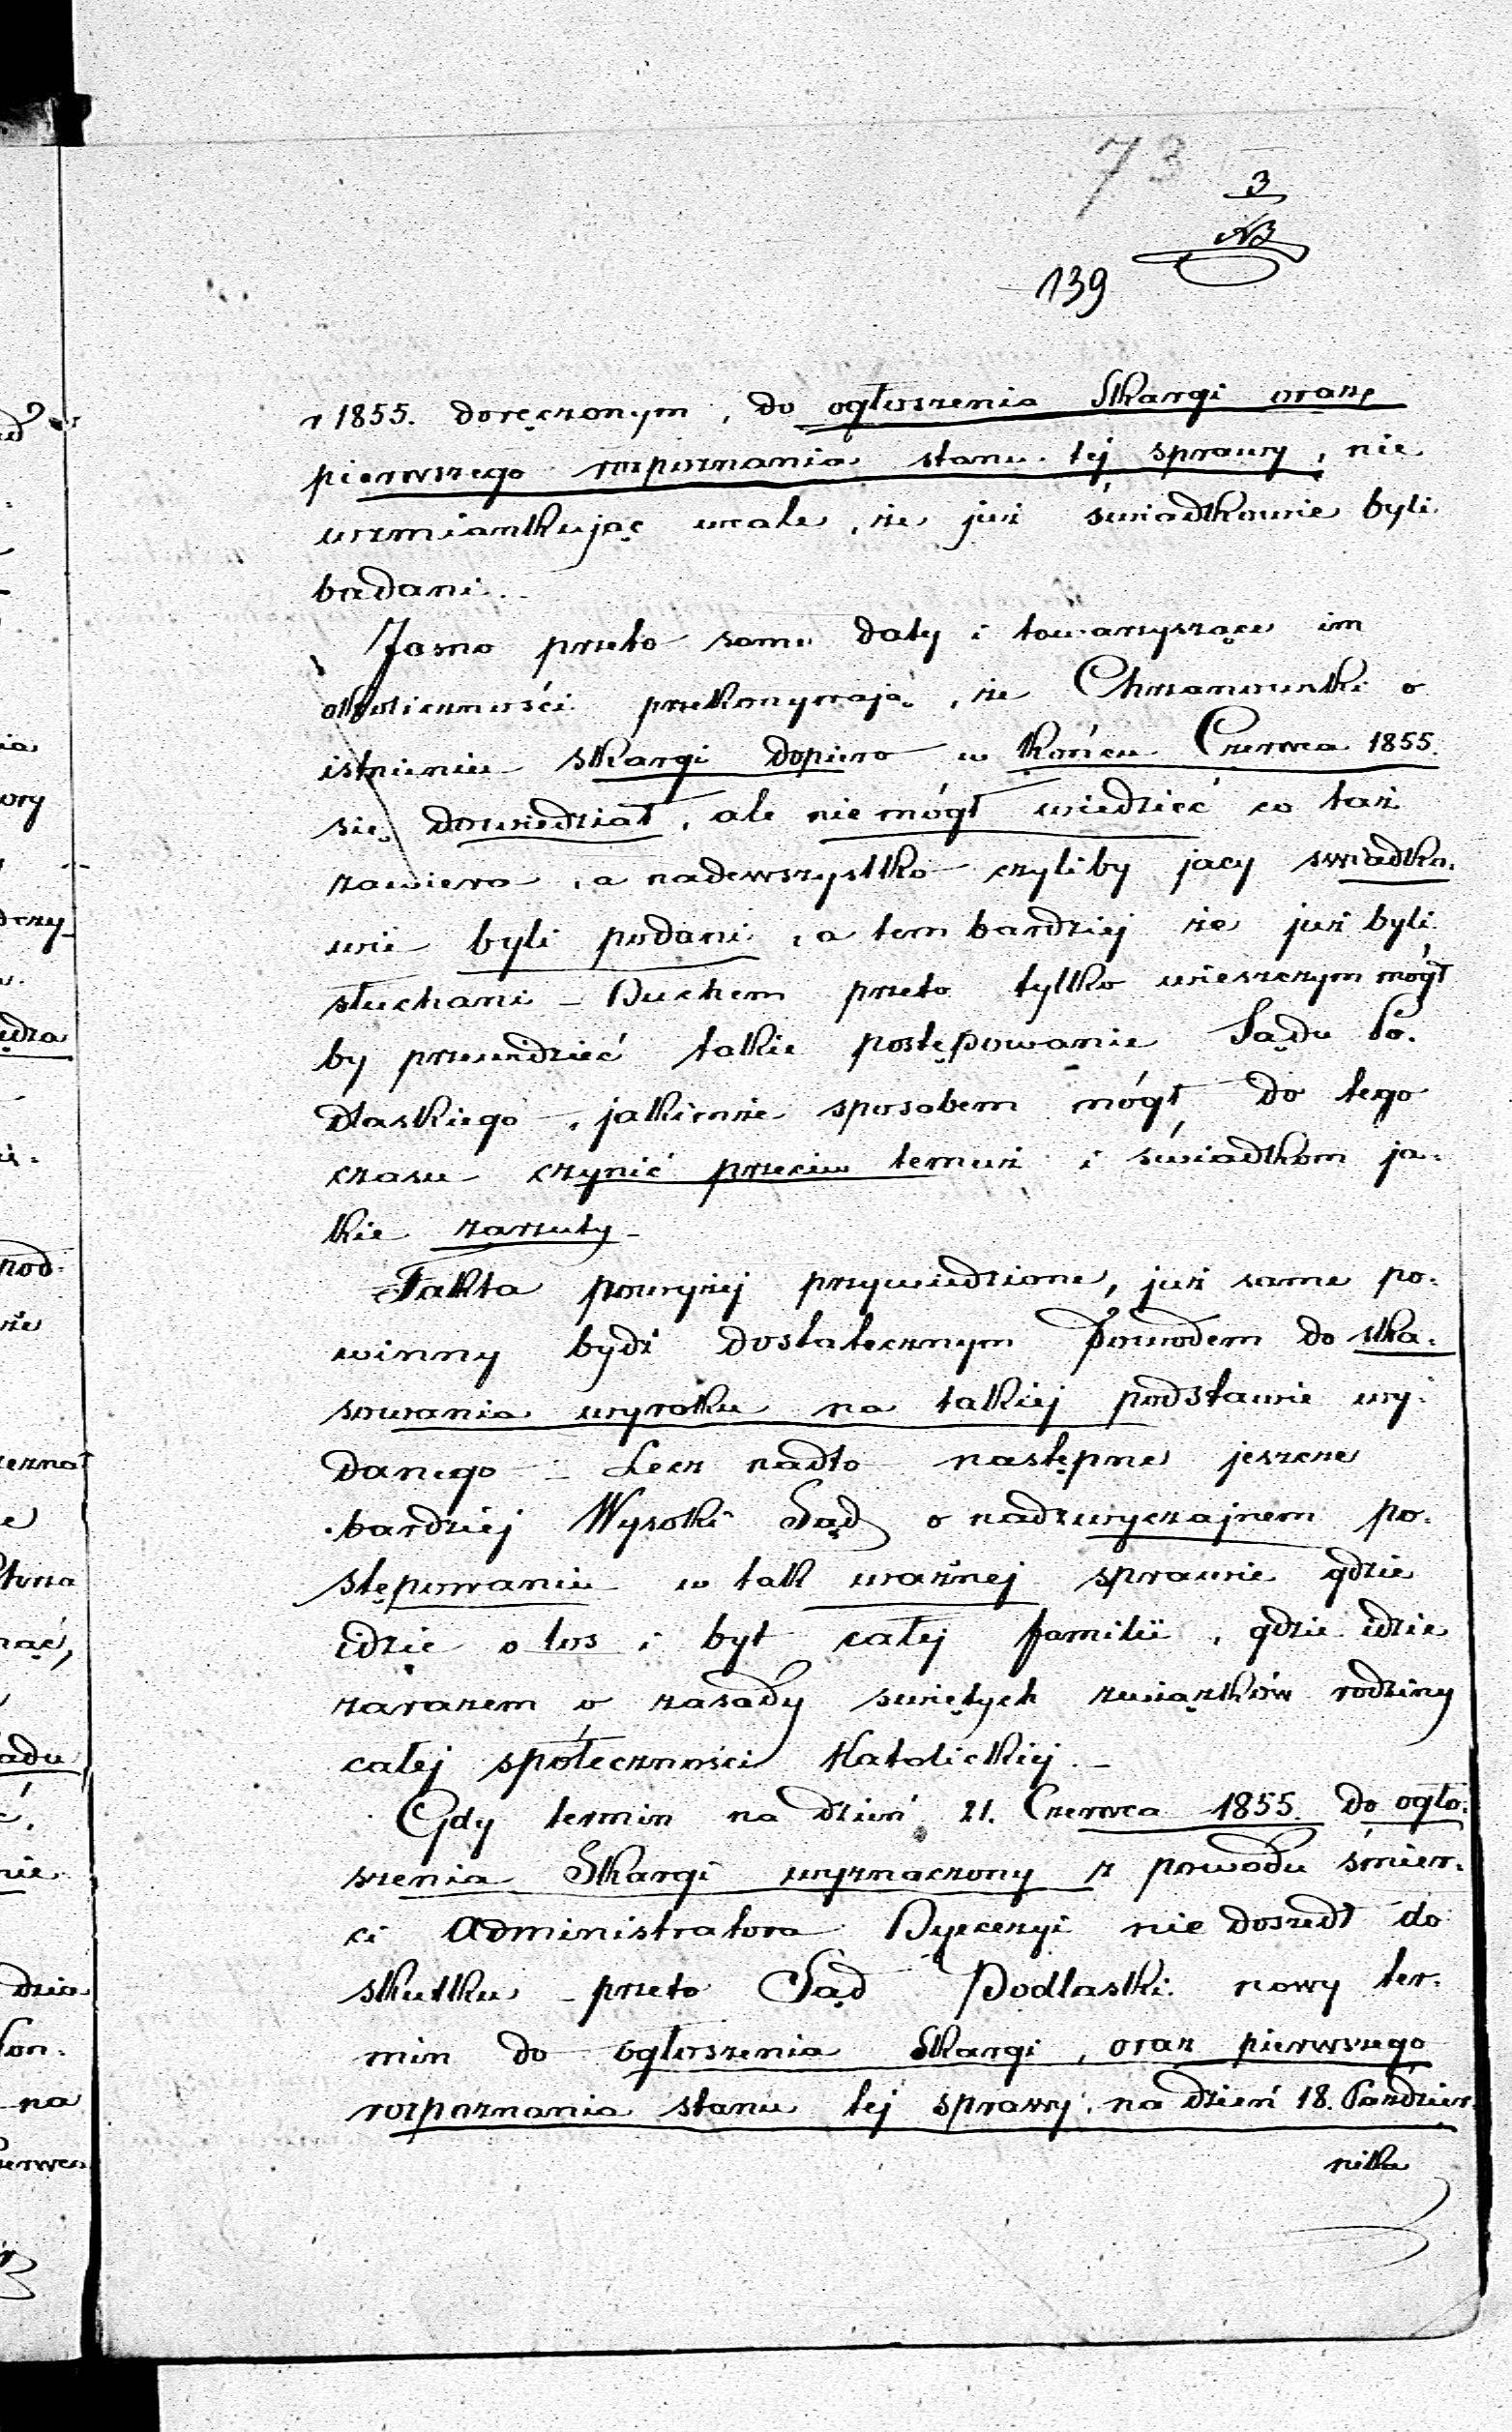 73
3
NB
139
r 1855. doręczonym, do ogłoszenia Skargi oraz
pierwszego rozpoznania stanu tej sprawy, nie
wzmiankując wcale, że już świadkowie byli
badani.
Jasno przeto same daty i towarzyszące im
okoliczności przekonywają, że Chrzanowski o
istnieniu skargi dopiero w końcu Czerwca 1855.
się dowiedział, ale nie mógł wiedzieć co taż
zawiera, a nadewszystko czyliby jacy swiadko.
wie byli podani, a tem bardziej że już byli
słuchani – Duchem przeto tylko wieszczym mógł
by przewidzieć takie postępowanie Sądu Po.
dlaskiego, jakimże sposobem mógł do tego
czasu czynić przeciw temuż i świadkom ja.
kie zarzuty –
Fakta powyżej przywiedzione, już same po.
winny bydź dostatecznym powodem do ska.
sowania wyroku na takiej podstawie wy.
danego – Lecz nadto następne jeszcze
bardziej Wysoki Sąd o nadzwyczajnem po.
stępowaniu w tak ważnej sprawie gdzie
idzie o los i byt całej familii, gdzie idzie
zarazem o zasady swiętych związków rodziny
całej społeczności Katolickiej. –
Gdy termin na dzień 21. Czerwca 1855. do ogło.
szenia Skargi wyznaczony z powodu śmier.
ci Administratora Dyecezyi nie doszedł do
skutku – przeto Sąd Podlaski nowy ter.
min do ogłoszenia Skargi, oraz pierwszego
rozpoznania stanu tej sprawy, na dzień 18. Paździer.
nika